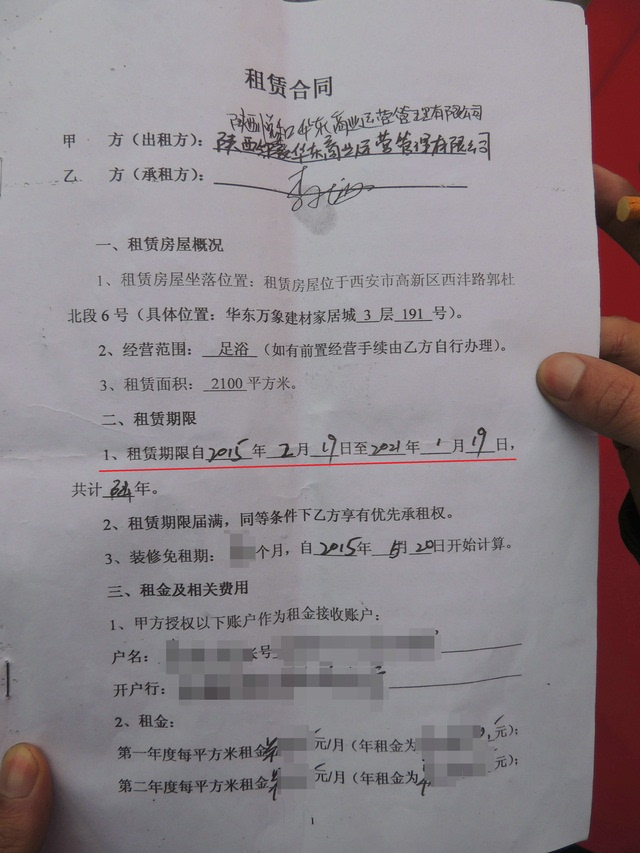 租赁合同
陕西悦和华东商业运营管理有限公司
甲 方（出租方）：陕西华东商业运营管理有限公司
乙 方（承租方）：李
一、租赁房屋概况
1、租赁房屋坐落位置：租赁房屋位于西安市高新区西沣路郭杜
北段6号（具体位置：华东万象建材家居城 3 层 191 号）。
2、经营范围： 足浴 （如有前置经营手续由乙方自行办理）。
3、租赁面积： 2100 平方米。
二、租赁期限
1、租赁期限自2015年 2月 19日至2021年 1月 19日，
共计 陆年。
2、租赁期限届满，同等条件下乙方享有优先承租权。
3、装修免租期： 个月，自 2015年 月 20日开始计算。
三、租金及相关费用
1、甲方授权以下账户作为租金接收账户：
户名： 账号
开户行：
2、租金：
第一年度每平方米租金 元/月（年租金为 元）；
第二年度每平方米租金 元/月（年租金为 元）；
1